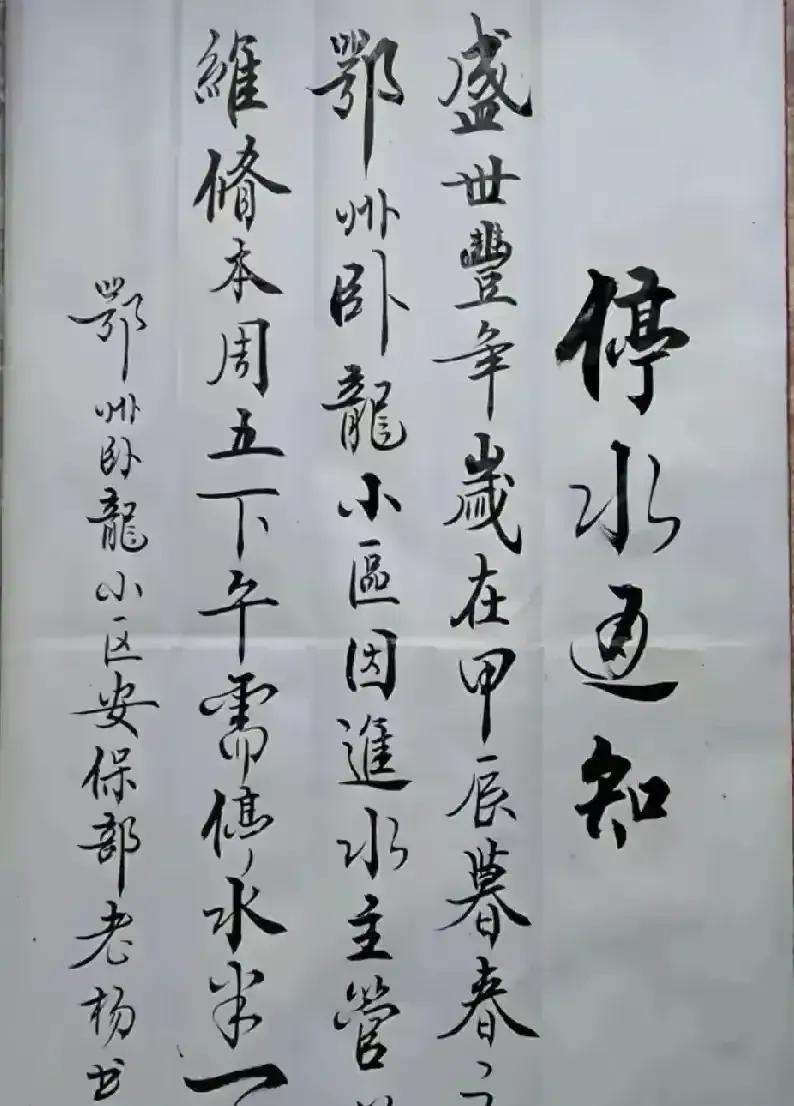 停水通知
盛世豐年歲在甲辰暮春
鄂州卧龍小區因進水主管
維脩本周五下午需停水半
鄂州卧龍小区安保部老杨书